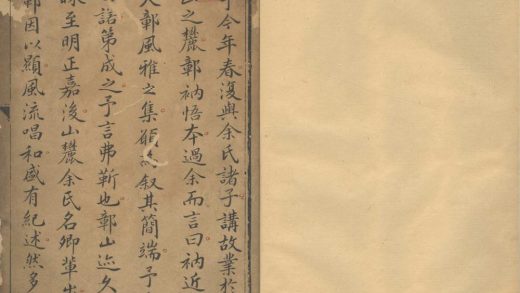 今年春復與余氏諸子講故業於
之麓鄣衲悟本過余而言曰衲近
鄣風雅之集願為叙其簡端予
話第成之予言弗靳也鄣山迹久
至明正嘉後山麓余氏名卿輩出
鄣因以顯風流唱和盛有紀述然多